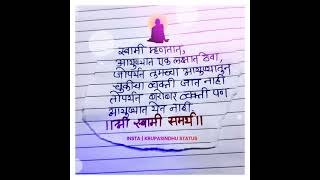 स्वामी म्हणतात,
आयुष्यात एक लक्षात ठेवा,
जोपर्यंत तुमच्या आयुष्यातून
चुकीचा व्यक्ती जात नाही
तोपर्यंत बरोबर व्यक्ती पण
आयुष्यात येत नाही.
||श्री स्वामी समर्थ||
INSTA | KRUPASINDHU STATUS